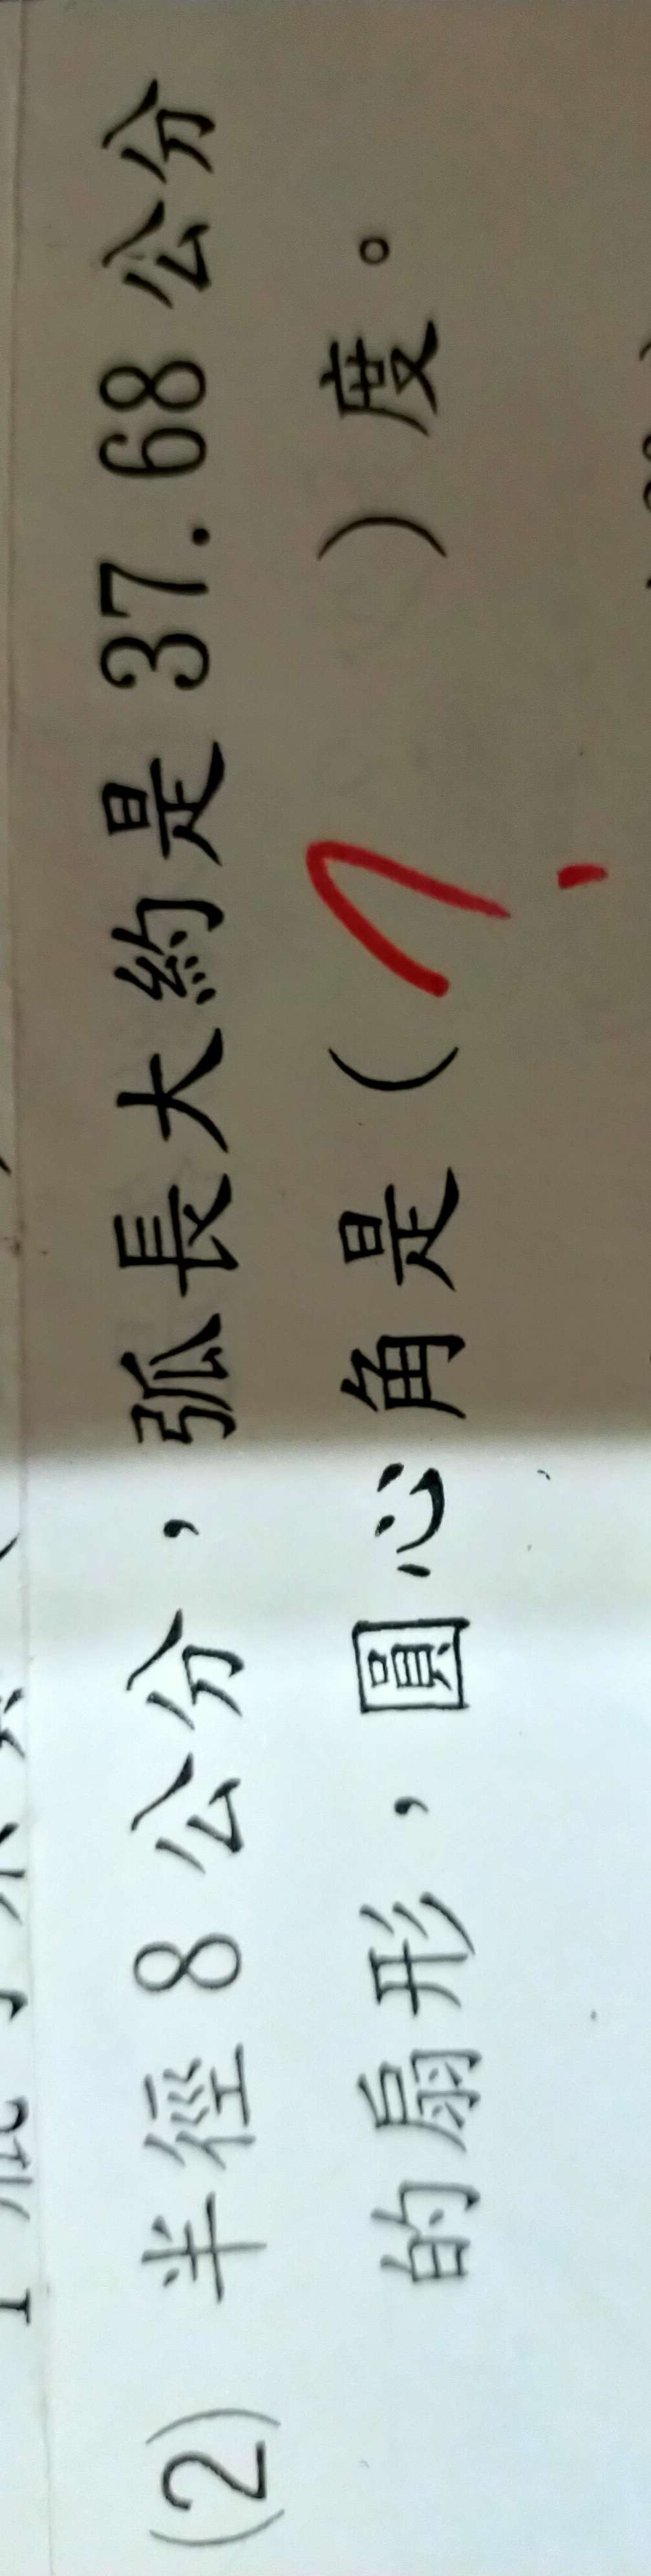 (2) 半徑 8 公分，弧長大約是 37.68 公分
的扇形，圓心角是（ ）度。